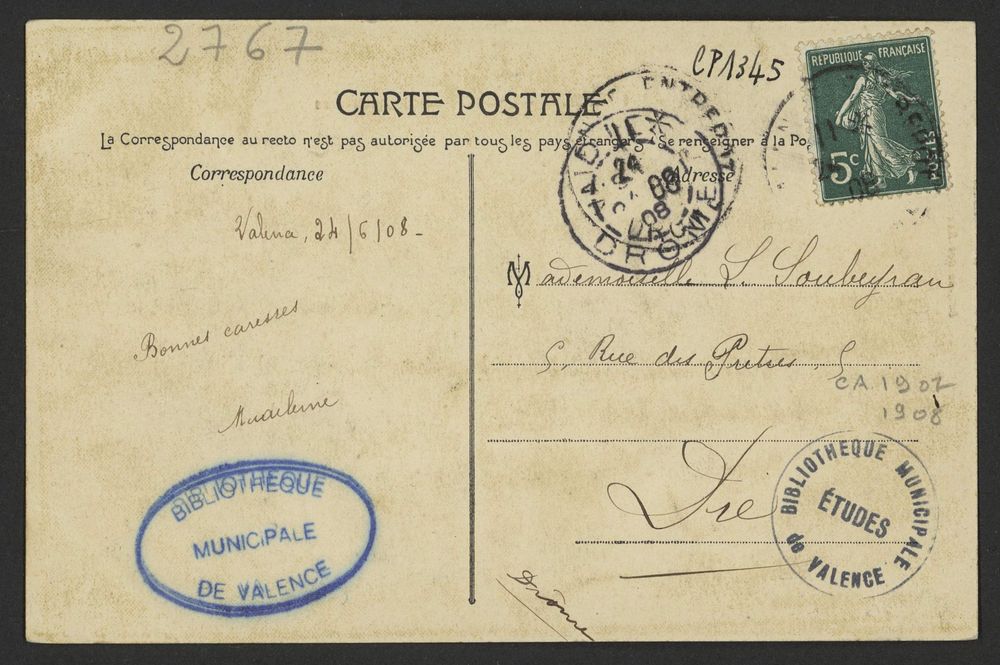 2767
CP1345
RÉPUBLIQUE FRANÇAISE
POSTES
5c
CARTE POSTALE
La Correspondance au recto n'est pas autorisée par tous les pays étrangers. Se renseigner à la Po
Correspondance
Adresse
DRÔME
24
08
11
08
Valence, 24/6/08-
Bonnes caresses
Madeleine
Mademoiselle L. Soubeyran
5, Rue des Prêtres, 5
Die
Drôme
CA 1907
1908
BIBLIOTHEQUE
MUNICIPALE
DE VALENCE
BIBLIOTHEQUE MUNICIPALE
ÉTUDES
de VALENCE